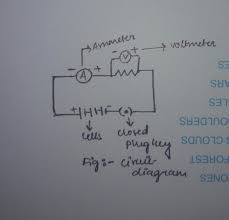 Ammeter
voltmeter
- A +
- V +
+ -
cells closed
plug key
Fig:- circuit
diagram
ES
ARS
LES
OULDERS
CLOUDS
FOREST
ONES